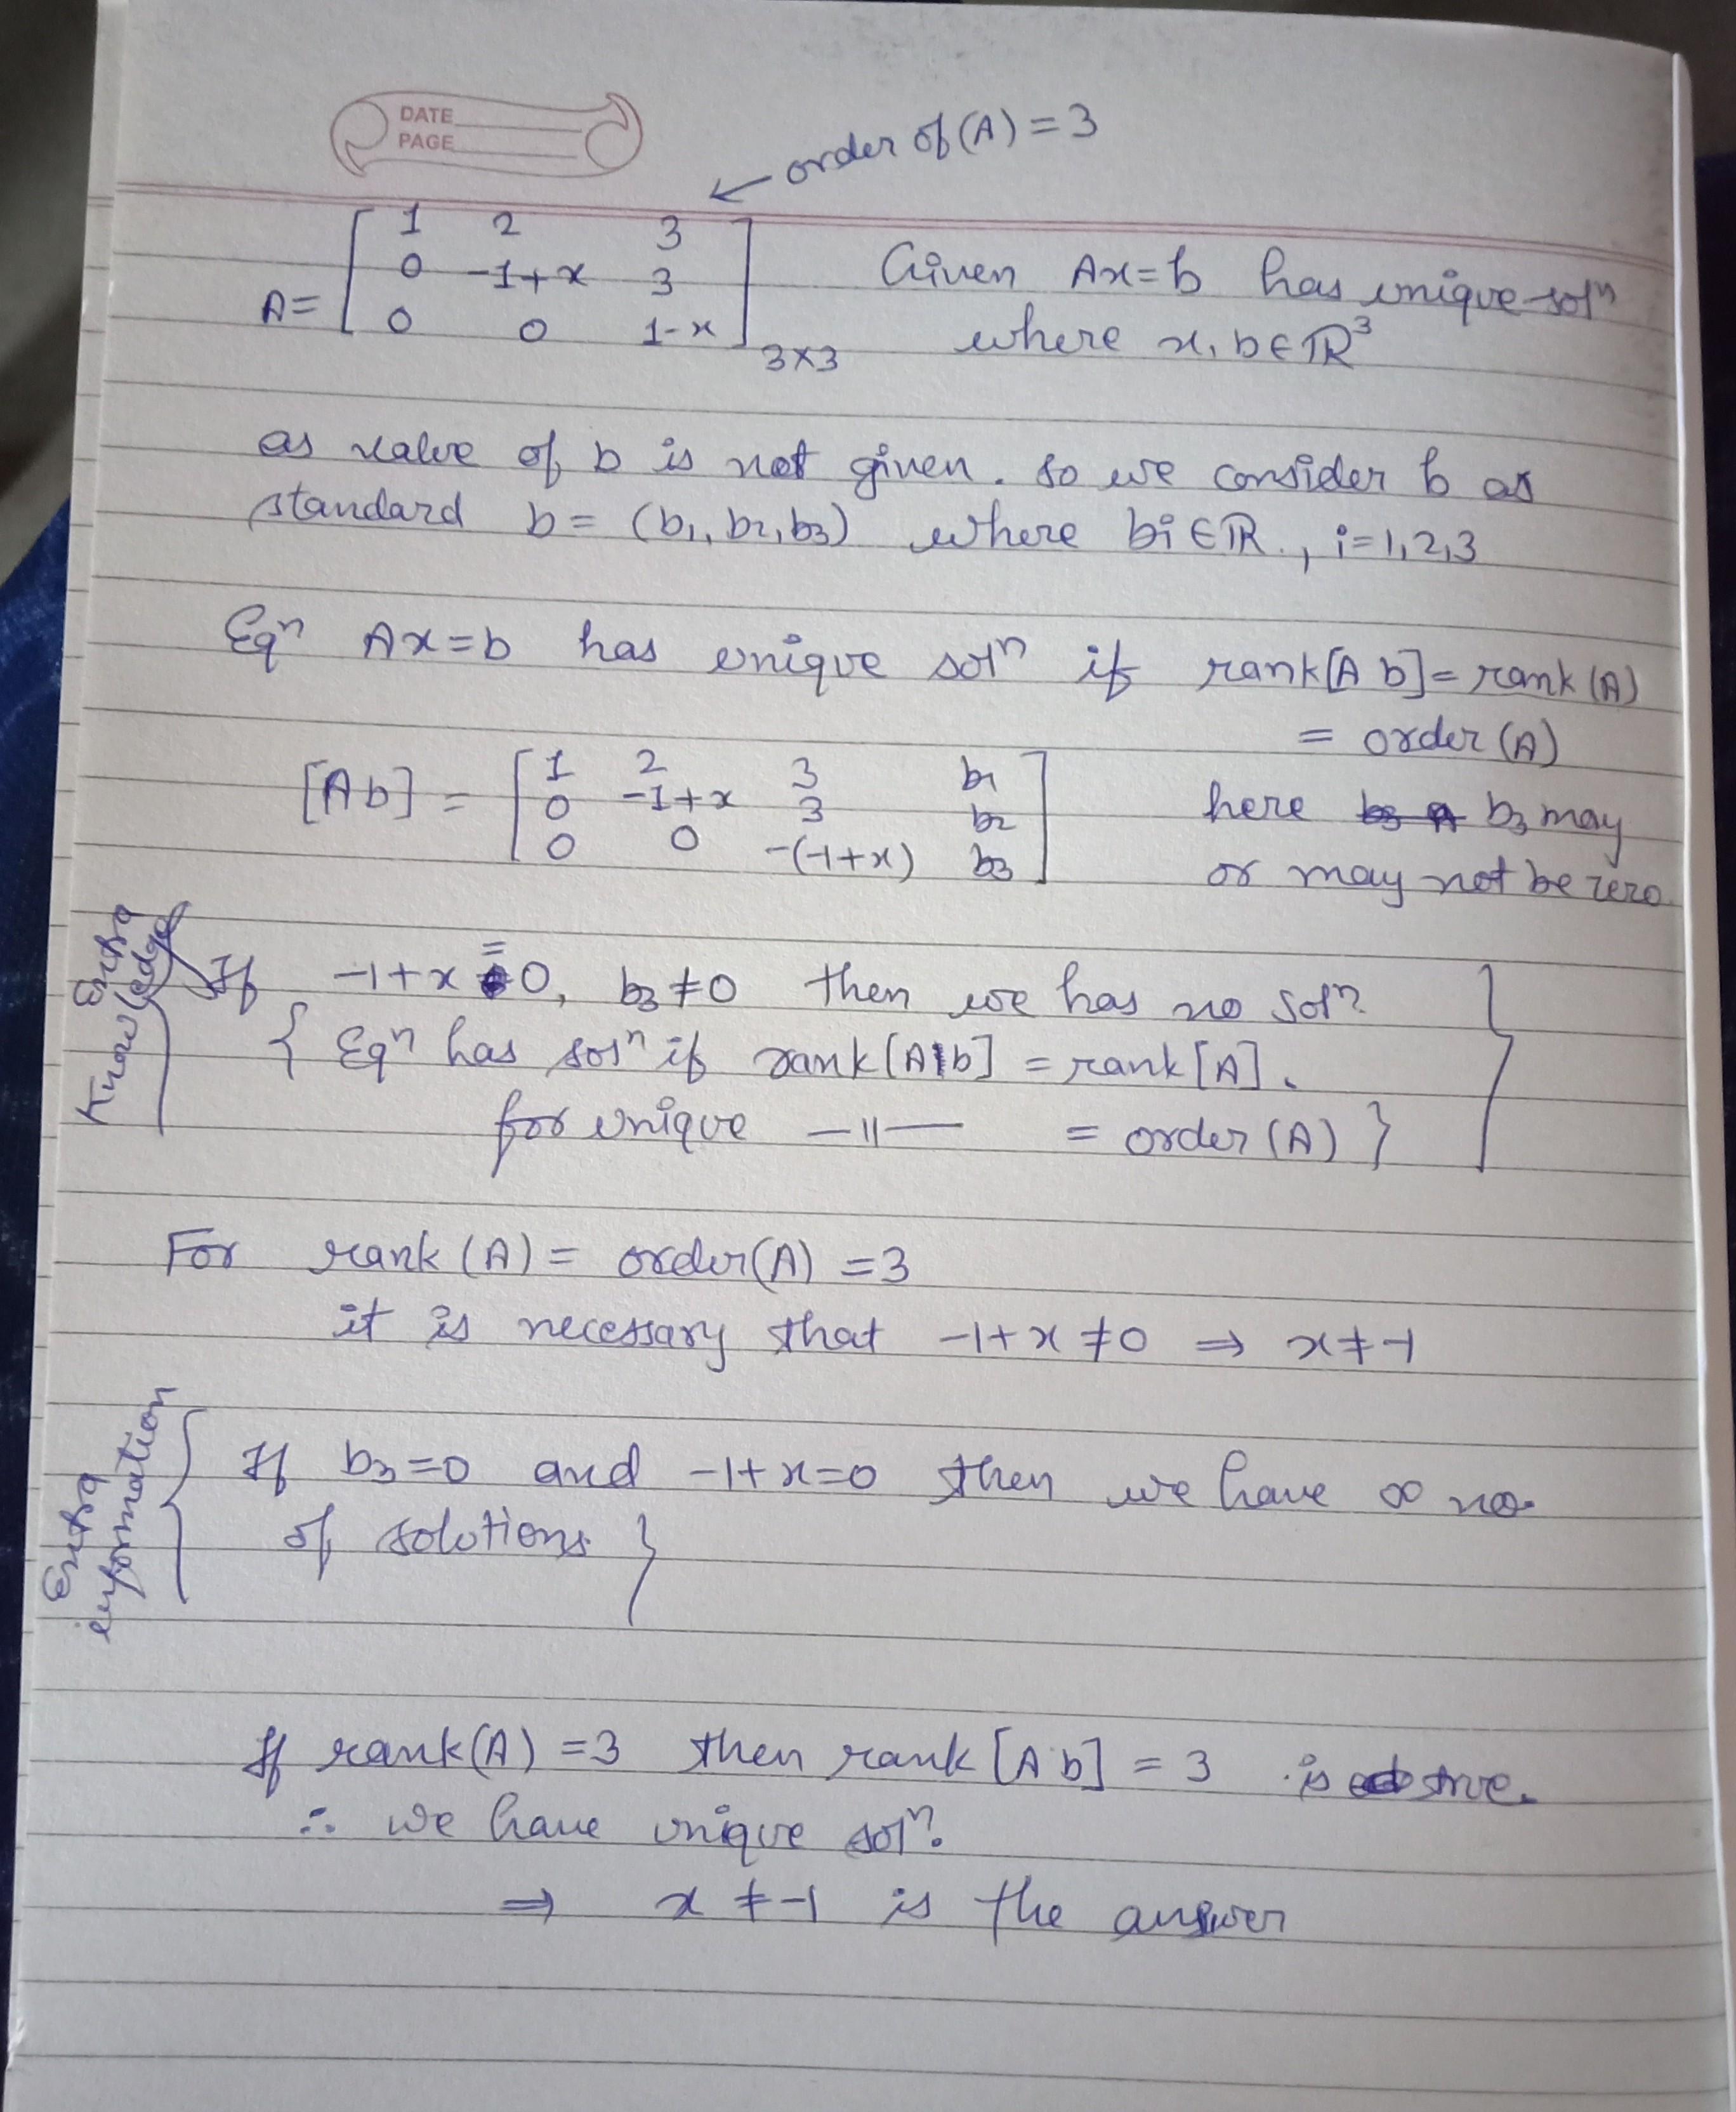 DATE
PAGE
← order of (A) = 3
A = [ 1 2 3
0 -1+x 3
0 0 1-x ] 3×3
Given Ax=b has unique solⁿ
where x, b ∈ ℝ³
as value of b is not given. so we consider b as
standard b = (b1, b2, b3) where bi ∈ ℝ., i=1,2,3
Eqⁿ Ax=b has unique solⁿ if rank[A b] = rank (A)
= order (A)
[Ab] = [ 1 2 3 b1
0 -1+x 3 b2
0 0 -(-1+x) b3 ]
here b3 may
or may not be zero
Extra
Knowledge
If -1+x = 0, b3 ≠ 0 then we has no solⁿ
{ Eqⁿ has solⁿ if rank [A|b] = rank [A].
for unique —11— = order (A) }
For rank (A) = order(A) = 3
it is necessary that -1+x ≠ 0 ⇒ x ≠ -1
Extra
information
If b3=0 and -1+x=0 then we have ∞ no.
of solutions }
If rank(A) = 3 then rank [A b] = 3 is true.
∴ we have unique solⁿ.
⇒ x ≠ -1 is the answer